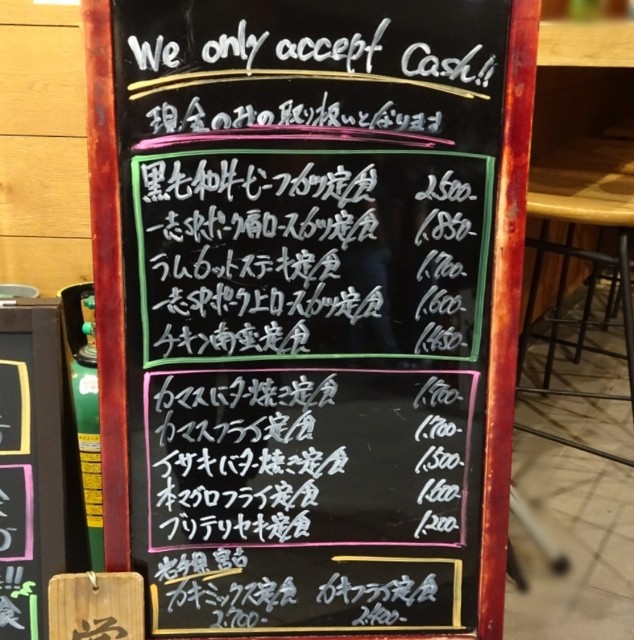 We only accept Cash!!
現金のみの取り扱いとなります
黒毛和牛ビーフカツ定食 2,500-
一志SPポーク肩ロースカツ定食 1,850-
ラムカットステーキ定食 1,700-
一志SPポーク上ロースカツ定食 1,600-
チキン南蛮定食 1,450-
カマスバター焼き定食 1,700-
カマスフライ定食 1,700-
イサキバター焼き定食 1,500-
本マグロフライ定食 1,600-
ブリテリヤキ定食 1,200-
岩手県 宮古
カキミックス定食 カキフライ定食
2,700- 2,400-
!!
食